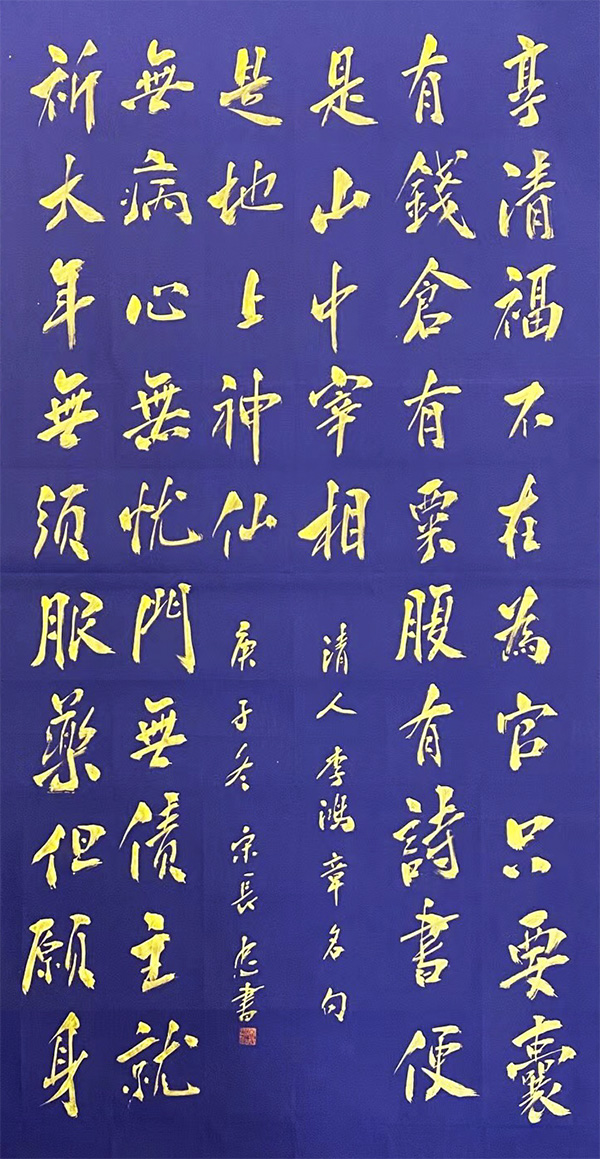 享清福不在為官只要囊
有錢倉有粟腹有詩書便
是山中宰相
清人李鴻章名句
祈大年無須服藥但願身
無病心無忧門無債主就
是地上神仙
庚子冬 宋長書